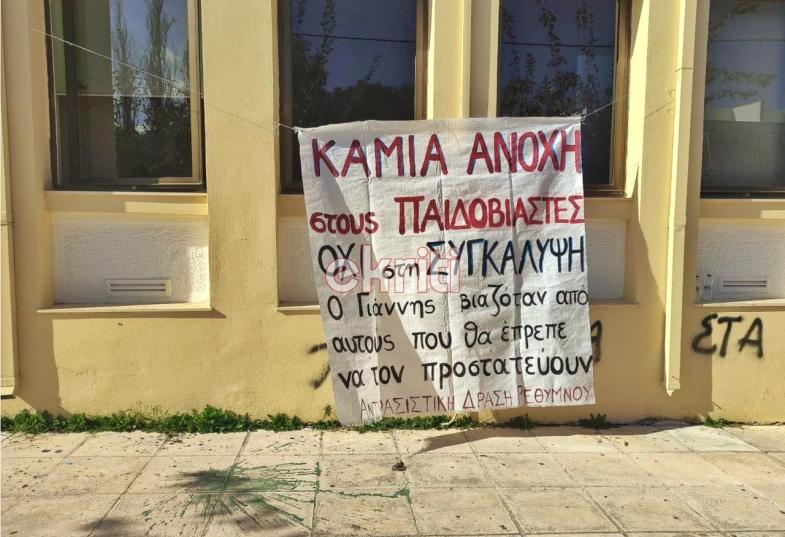 ΚΑΜΙΑ ΑΝΟΧΗ
στους ΠΑΙΔΟΒΙΑΣΤΕΣ
ΟΧΙ στη ΣΥΓΚΑΛΥΨΗ
Ο Γιάννης βιαζόταν από
αυτους που θα έπρεπε
να τον προστατεύουν
ΑΝΤΙΡΑΣΙΣΤΙΚΗ ΔΡΑΣΗ ΡΕΘΥΜΝΟΥ
ekriti
ΣΤΑ